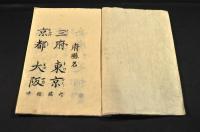 府縣名
三府 東京
京都 大阪